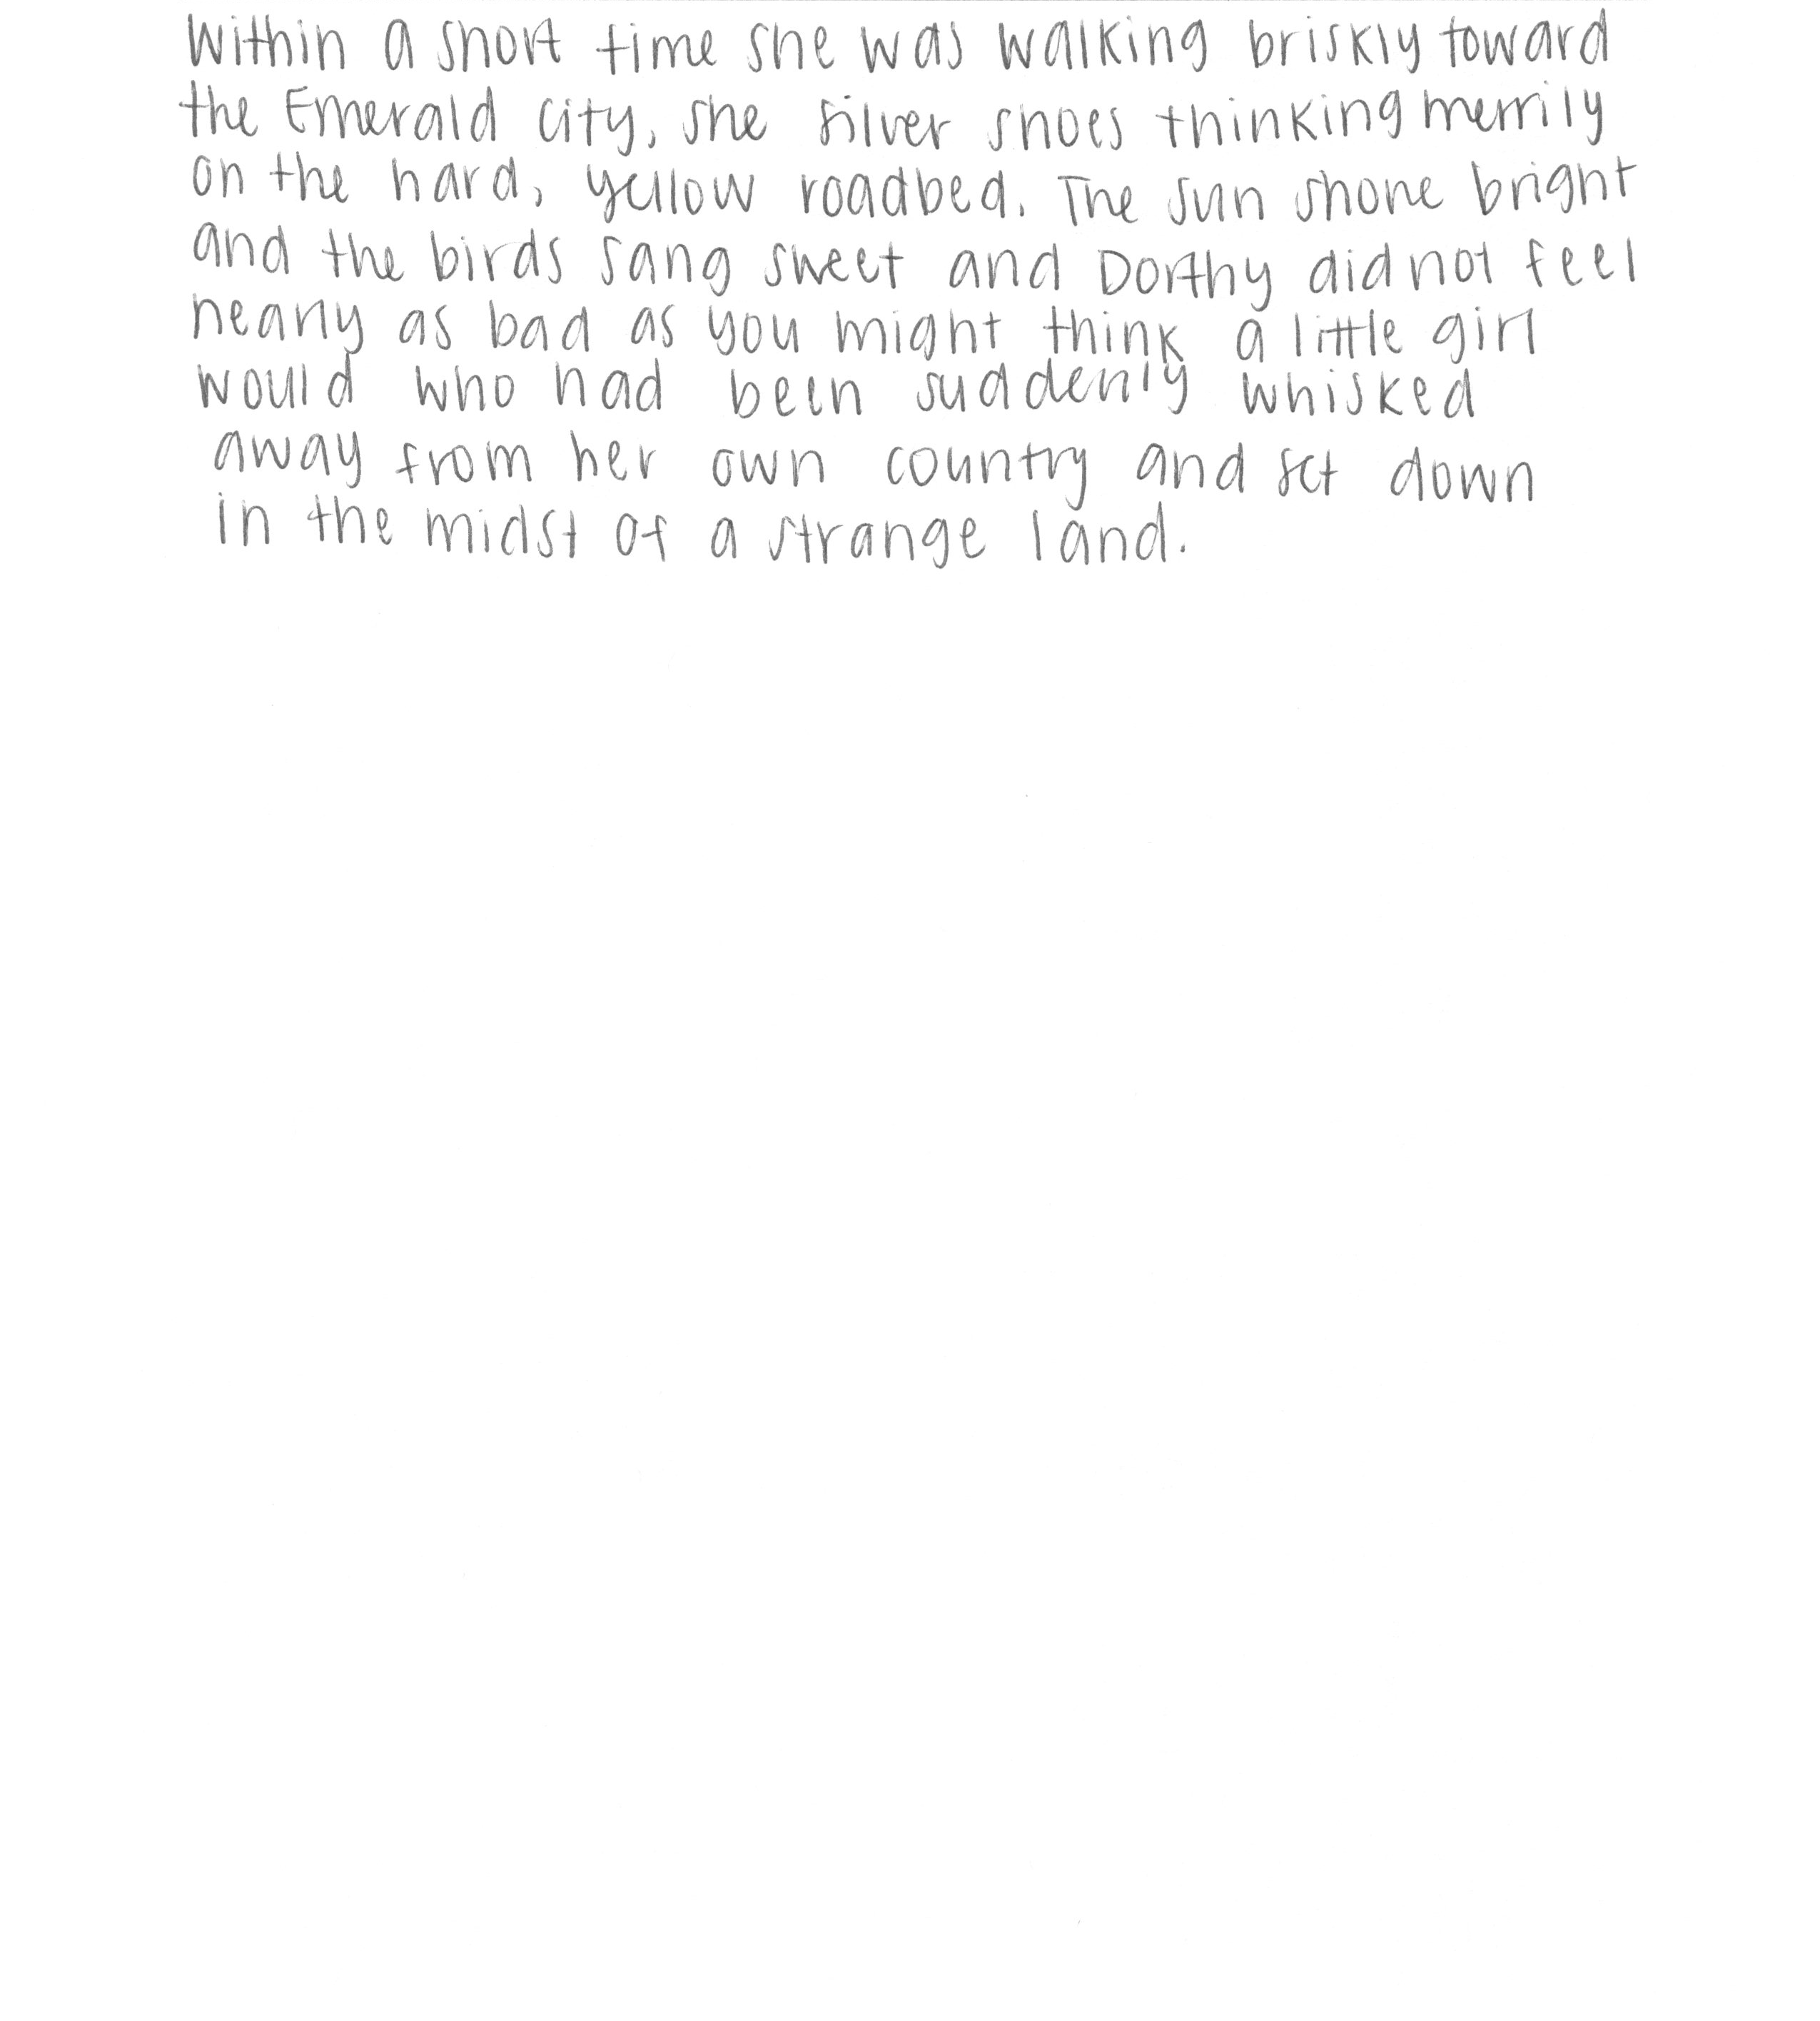 Within a short time she was walking briskly toward
the Emerald City, she silver shoes thinking merrily
on the hard, yellow roadbed. The sun shone bright
and the birds sang sweet and Dorthy did not feel
nearly as bad as you might think a little girl
would who had been suddenly whisked
away from her own country and set down
in the midst of a strange land.